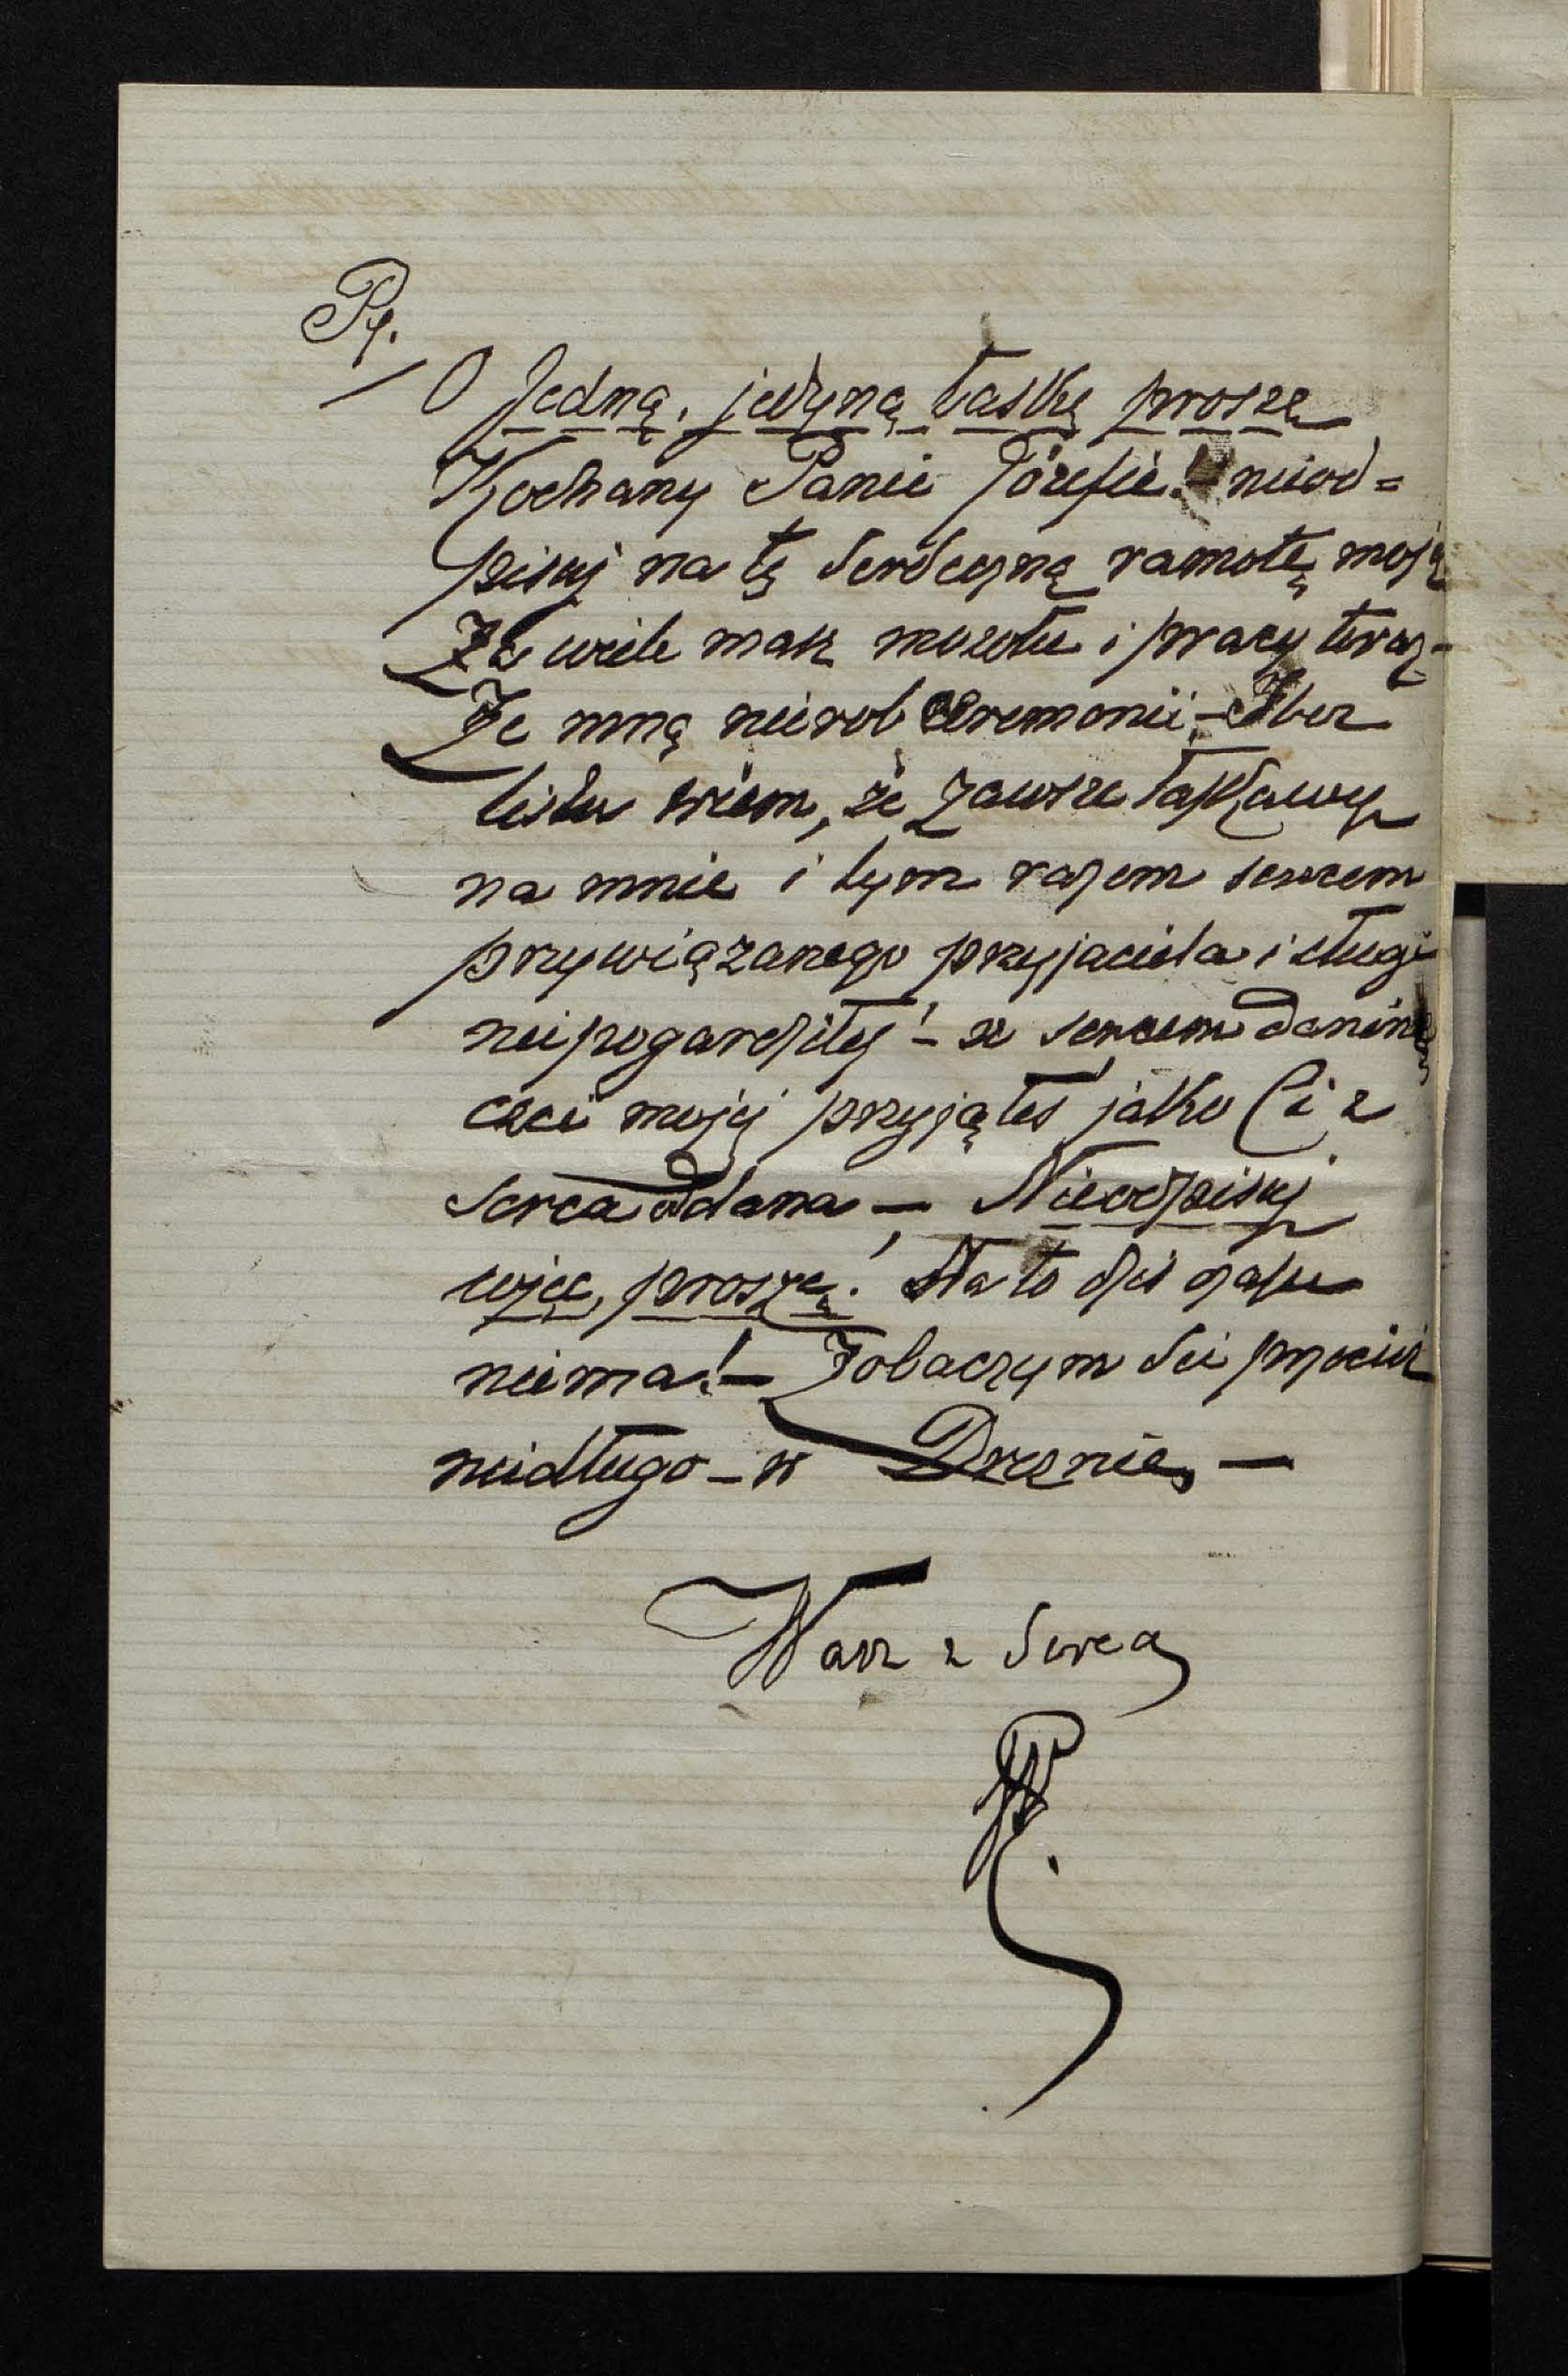 Ps.
O Jedną, jedyną łaskę proszę
Kochany Panie Józefie! nieod=
pisuj na tę serdeczną ramotę moją
Za wiele masz mozołu i pracy teraz-
Ze mną nierob ceremonii - I bez
listu wiem, że zawsze łaskawy
na mnie i tym razem sercem
przywiązanego przyjaciela i sługi
niepogardziłeś! - a sercem daninę
czci mojéj przyjąłeś jako Ci z
serca oddana - Nieodpisuj
więc, proszę! Na to dziś czasu
niema! - Zobaczym sie przecież
niedługo - w Dreznie, -
Wasz z serca